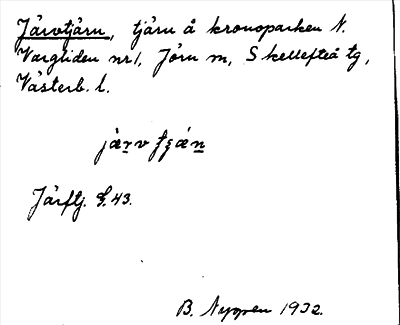 Järvtjärn, tjärn å kronoparken N.
Vargliden nr 1, Jörn m, Skellefteå tg,
Västerb. l.
järv tjän
Järftj. S. 43.
B. Nygren 1932.